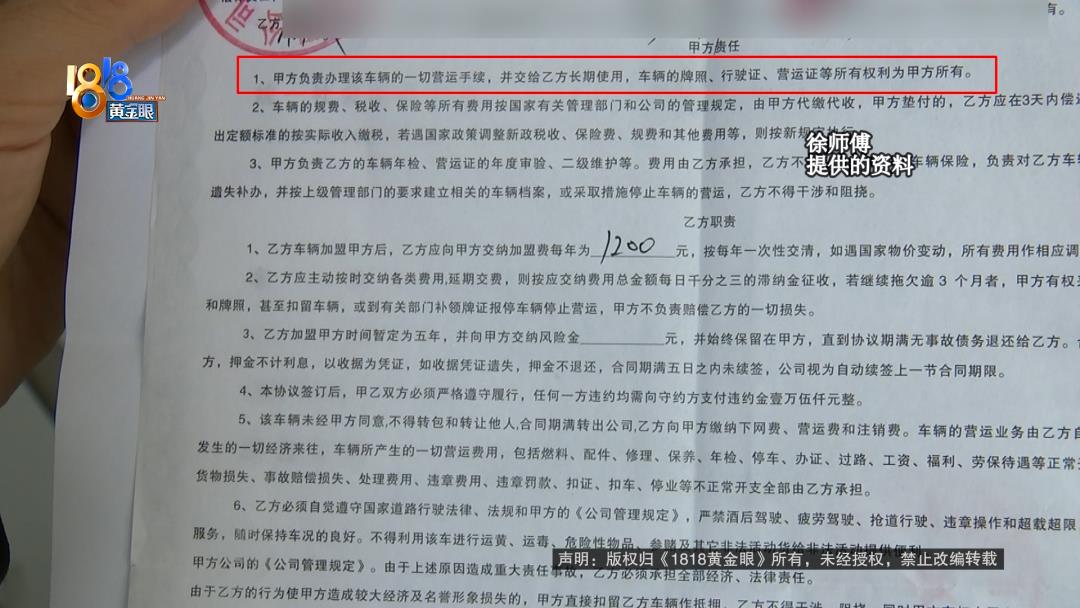 乙方
有。
甲方责任
1、甲方负责办理该车辆的一切营运手续，并交给乙方长期使用，车辆的牌照、行驶证、营运证等所有权利为甲方所有。
1818
HUANG JIN YAN
黄金眼
2、车辆的规费、税收、保险等所有费用按国家有关管理部门和公司的管理规定，由甲方代缴代收，甲方垫付的，乙方应在3天内偿
出定额标准的按实际收入缴税，若遇国家政策调整新政税收、保险费、规费和其他费用等，则按新规定执行
徐师傅
提供的资料
3、甲方负责乙方的车辆年检、营运证的年度审验、二级维护等。费用由乙方承担，乙方不 车辆保险，负责对乙方车
遗失补办，并按上级管理部门的要求建立相关的车辆档案，或采取措施停止车辆的营运，乙方不得干涉和阻挠。
乙方职责
1、乙方车辆加盟甲方后，乙方应向甲方交纳加盟费每年为1200元，按每年一次性交清，如遇国家物价变动，所有费用作相应调
2、乙方应主动按时交纳各类费用,延期交费，则按应交纳费用总金额每日千分之三的滞纳金征收，若继续拖欠逾 3 个月者，甲方有权
和牌照，甚至扣留车辆，或到有关部门补领牌证报停车辆停止营运，甲方不负责赔偿乙方的一切损失。
3、乙方加盟甲方时间暂定为五年，并向甲方交纳风险金________元，并始终保留在甲方，直到协议期满无事故债务退还给乙方。
方，押金不计利息，以收据为凭证，如收据凭证遗失，押金不退还，合同期满五日之内未续签，公司视为自动续签上一节合同期限。
4、本协议签订后，甲乙双方必须严格遵守履行，任何一方违约均需向守约方支付违约金壹万伍仟元整。
5、该车辆未经甲方同意,不得转包和转让他人,合同期满转出公司,乙方向甲方缴纳下网费、营运费和注销费。车辆的营运业务由乙方自
发生的一切经济来往，车辆所产生的一切营运费用，包括燃料、配件、修理、保养、年检、停车、办证、过路、工资、福利、劳保待遇等正常开
货物损失、事故赔偿损失、处理费用、违章费用、违章罚款、扣证、扣车、停业等不正常开支全部由乙方承担。
6、乙方必须自觉遵守国家道路行驶法律、法规和甲方的《公司管理规定》，严禁酒后驾驶、疲劳驾驶、抢道行驶、违章操作和超载超限
服务，随时保持车况的良好。不得利用该车进行运黄、运毒、危险性物品、参赌及其它非法活动货给非法活动提供便利
声明：版权归《1818黄金眼》所有，未经授权，禁止改编转载
甲方公司的《公司管理规定》。由于上述原因造成重大责任事故，乙方必须承担全部经济、法律责任。
由于乙方的行为使甲方造成较大经济及名誉形象损失的，甲方直接扣留乙方车辆作抵押。乙方不得干涉、阻挠